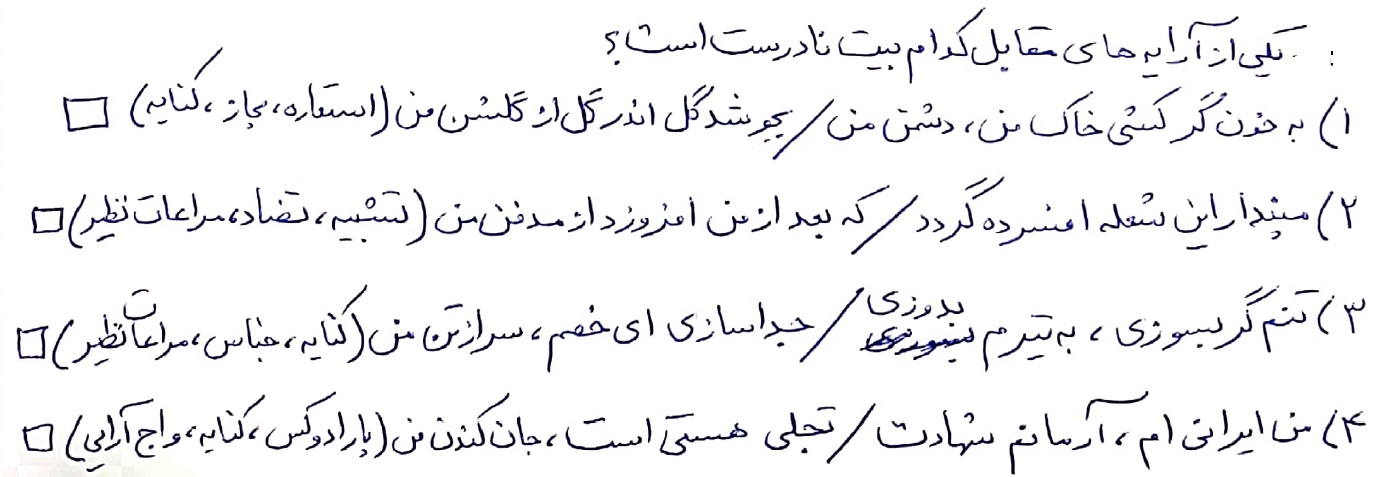 یکی از آرایه های مقابل کدام بیت نادرست است؟
۱) به خون گر کشی خاک من، دشمن من / بجوشد گل اندر گل از گلشن من (استعاره، مجاز، کنایه) □
۲) مپندار این شعله افسرده گردد / که بعد از من افروزد از مدفن من (تشبیه، تضاد، مراعات نظیر) □
۳) تنم گر بسوزی، به تیرم بدوزی / جدا سازی ای خصم، سر از تن من (کنایه، جناس، مراعات نظیر) □
۴) من ایرانی ام، آرمانم شهادت / تجلی هستی است، جان کندن من (پارادوکس، کنایه، واج آرایی) □